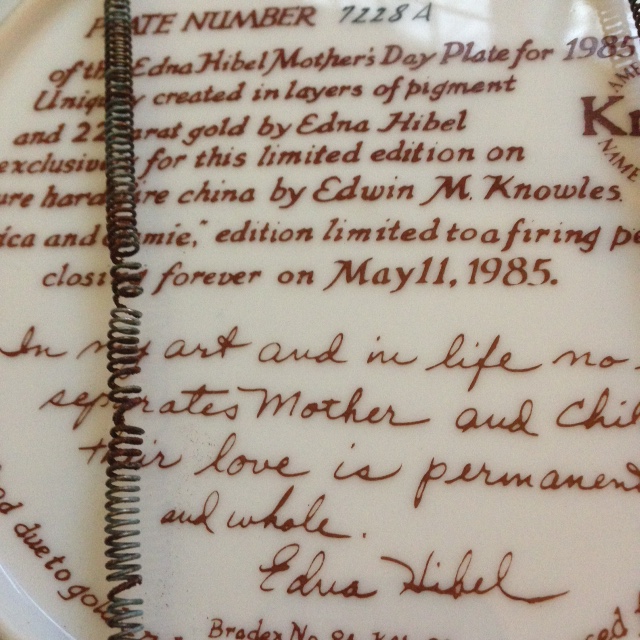 PLATE NUMBER 7228A
of the Edna Hibel Mother's Day Plate for 1985
Uniquely created in layers of pigment
and 22 karat gold by Edna Hibel
exclusively for this limited edition on
hardfire china by Edwin M. Knowles.
and "mic," edition limited to a firing
closing forever on May 11, 1985.
In my art and in life no
separates Mother and Child
their love is permanent
and whole.
Edna Hibel
due to
Bradex No.
NAME